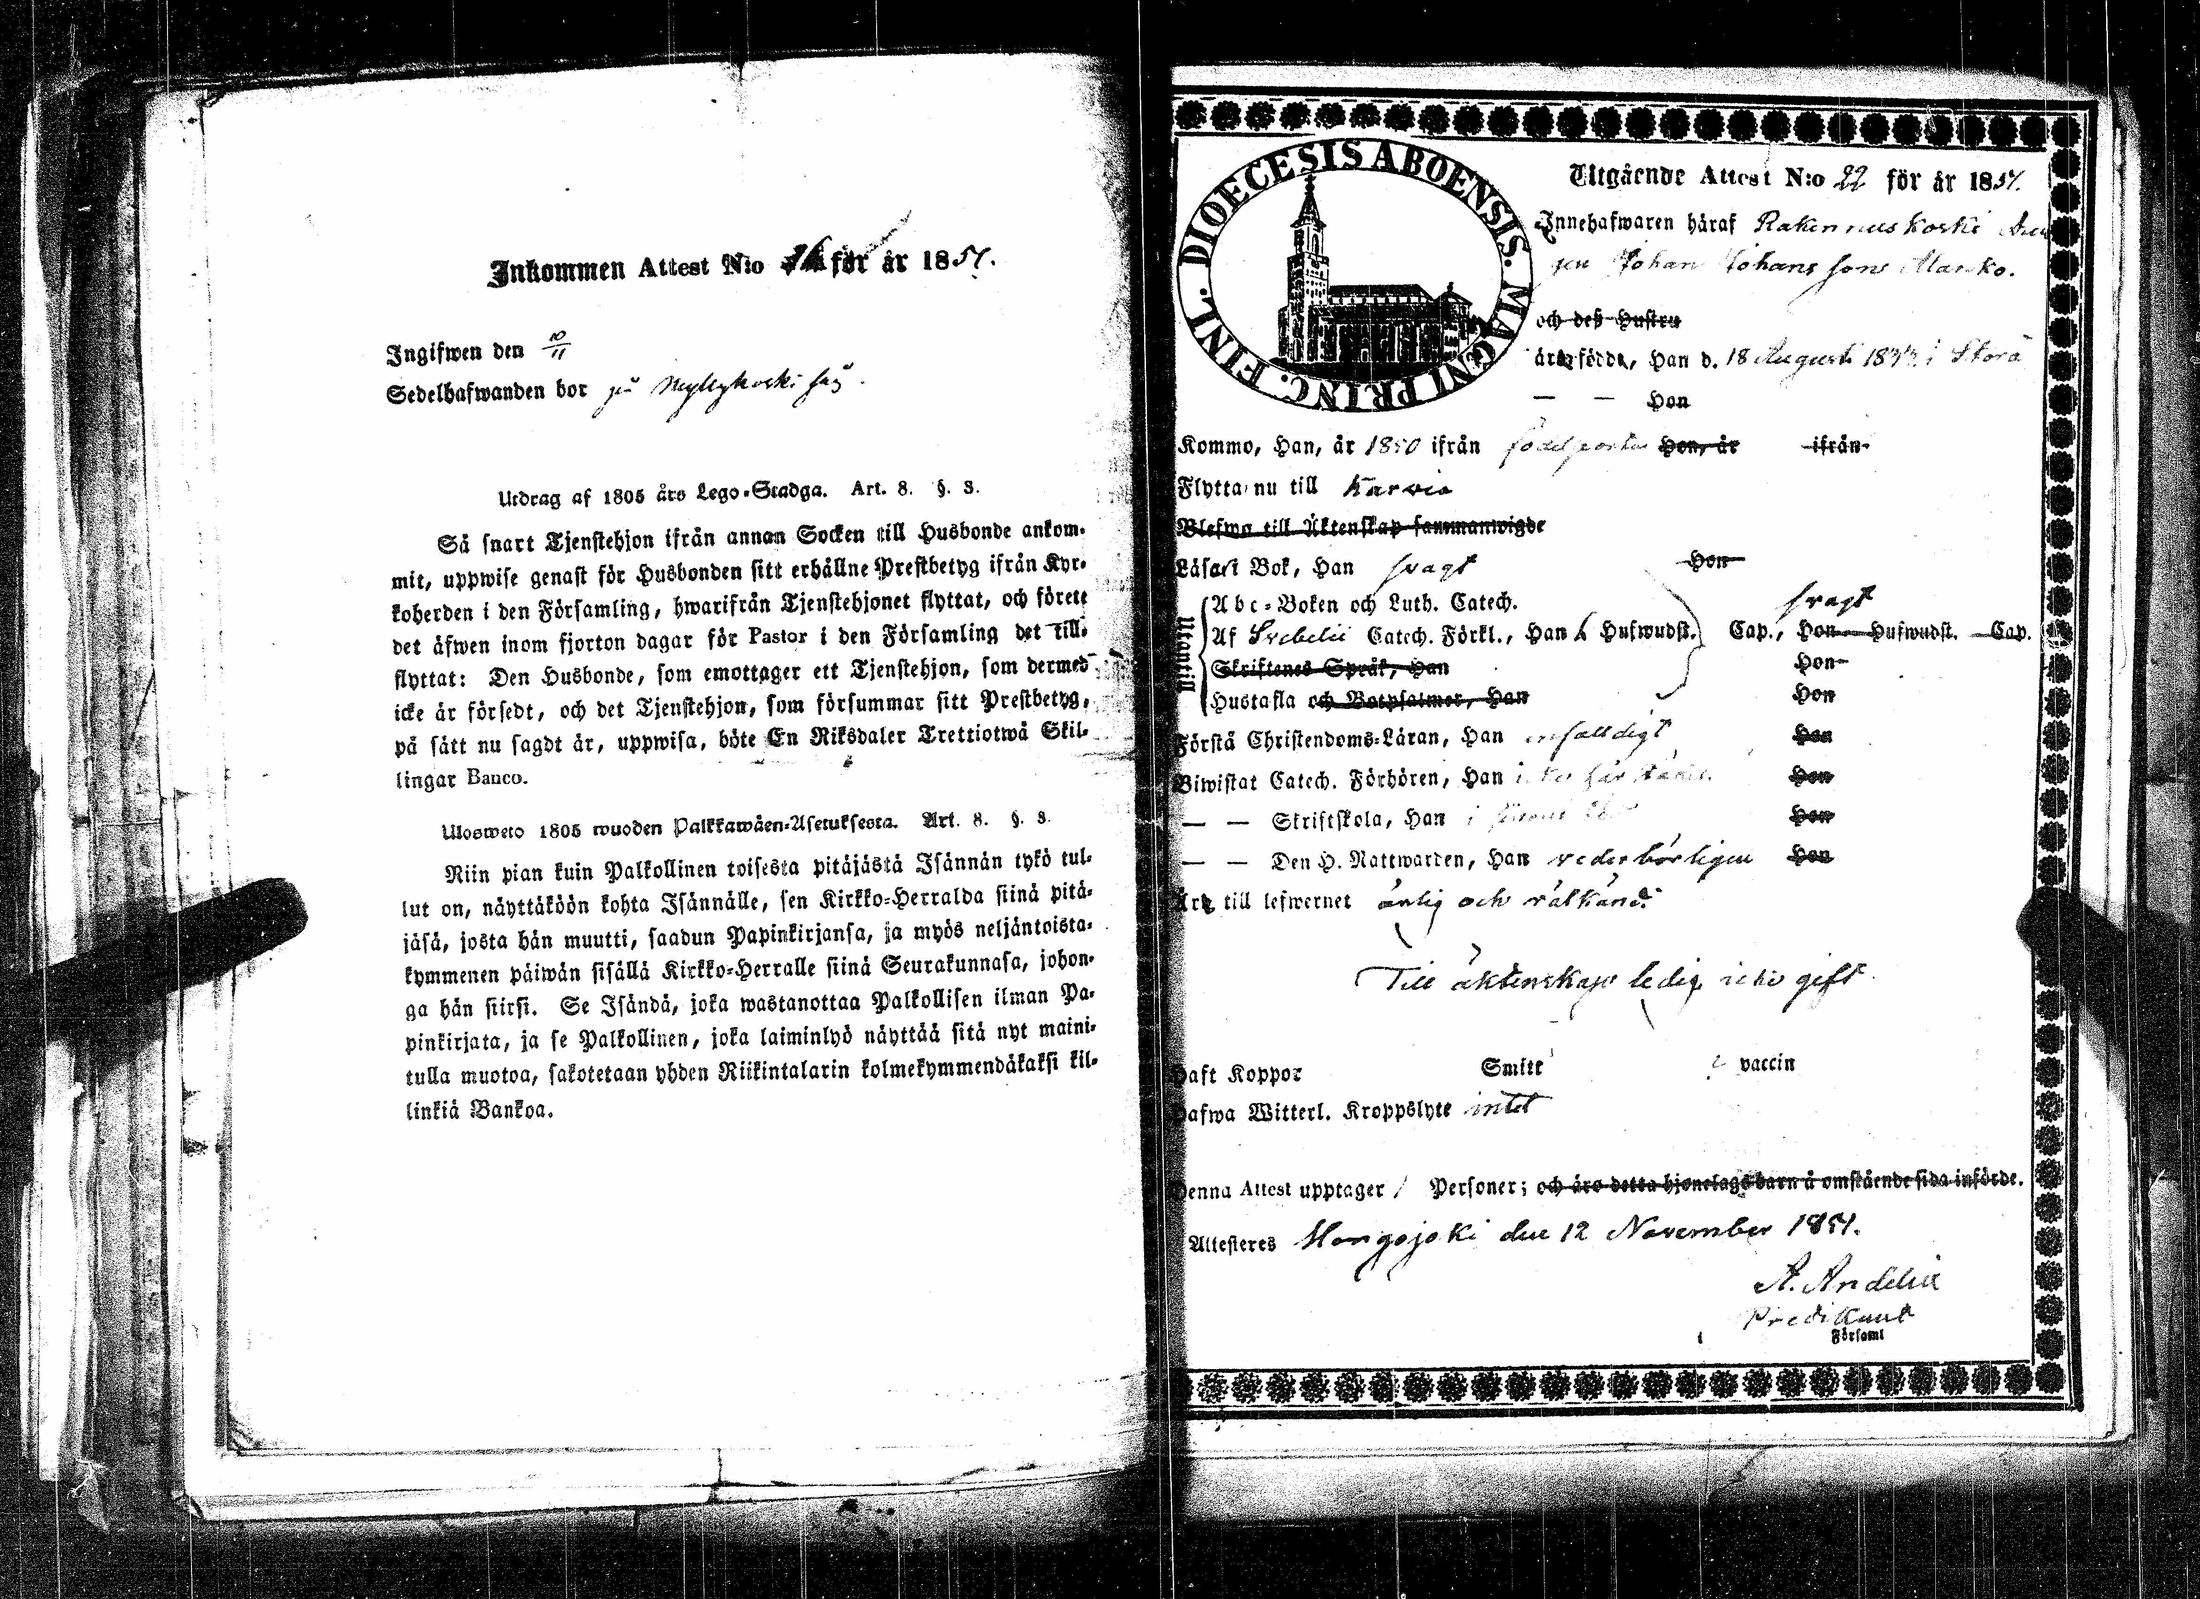 Inkommen Attest N:o för år 1851.
Ingifwen den 10/11
Sedelhafwanden bor på Myllykoski såg.
Utdrag af 1805 års Lego-Stadga. Art. 8. §. 3.
Så snart Tjenstehjon ifrån annan Socken till Husbonde ankom-
mit, uppwise genast för Husbonden sitt erhållne Prestbetyg ifrån Kyr-
koherden i den Församling, hwarifrån Tjenstehjonet flyttat, och förete
det äfwen inom fjorton dagar för Pastor i den Församling det till-
flyttat: Den Husbonde, som emottager ett Tjenstehjon, som dermed
icke är försedt, och det Tjenstehjon, som försummar sitt Prestbetyg,
på sätt nu sagdt är, uppwisa, böte En Riksdaler Trettiotwå Skil-
lingar Banco.
Ulosweto 1805 wuoden Palkkawäen-Asetuksesta. Art. 8. §. 3.
Niin pian kuin Palkollinen toisesta pitäjästä Isännän tykö tul-
lut on, näyttäköön kohta Isännälle, sen Kirkko-Herralda siinä pitä-
jäsä, josta hän muutti, saadun Papinkirjansa, ja myös neljäntoista-
kymmenen päiwän sisällä Kirkko-Herralle siinä Seurakunnasa, johon-
ga hän siirsi. Se Isändä, joka wastanottaa Palkollisen ilman Pa-
pinkirjata, ja se Palkollinen, joka laiminlyö näyttää sitä nyt maini-
tulla muotoa, sakotetaan yhden Riikintalarin kolmekymmendäkaksi kil-
linkiä Bankoa.
DIOECESIS ABOENSIS. MAGNI PRINC. FINL.
Utgående Attest N:o 22 för år 1851.
Innehafwaren häraf Rakennuskoski
Johan Johansson
och deß Hustru
äro födde, Han d. 18 Augusti i Storå
— — Hon
Kommo, Han, år 1850 ifrån födelseorten Hon, år ifrån
Flytta nu till Karvia
Blefwo till Äktenskap sammanwigde
Läsart Bok, Han svagt Hon
Utantill
Abc-Boken och Luth. Catech. svagt
Af Svebelii Catech. Förkl., Han 6 Hufwudst. Cap., Hon Hufwudst. Cap.
Skriftenes Språk, Han Hon
Hustafla och Botpsalmer, Han Hon
Förstå Christendoms-Läran, Han enfaldigt Hon
Biwistat Catech. Förhören, Han Hon
— — Skriftskola, Han Hon
— — Den H. Nattwarden, Han vederbörligen Hon
Äro till lefwernet ärlig och välkänd.
Till äktenskap ledig icke gift.
Haft Koppor Smitt vaccin
Hafwa Witterl. Kroppslyte intet
Denna Attest upptager 1 Personer; och äro detta hjonelags barn å omstående sida införde.
Attesteres Hongojoki den 12 November 1851.
A. Andelin
Predikant
Församl